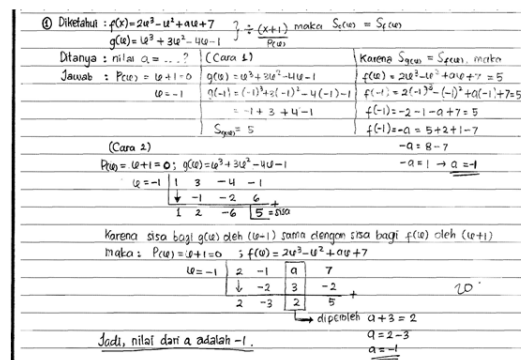 ① Diketahui : f(x) = 2x³ - x² + ax + 7
g(x) = x³ + 3x² - 4x - 1
} ÷ (x+1) maka S f(x) = S g(x)
P(x)
Ditanya : nilai a = ... ?
Jawab : P(x) = x + 1 = 0
x = -1
(Cara 1)
g(x) = x³ + 3x² - 4x - 1
g(-1) = (-1)³ + 3(-1)² - 4(-1) - 1
= -1 + 3 + 4 - 1
S g(x) = 5
Karena S g(x) = S f(x), maka
f(x) = 2x³ - x² + ax + 7 = 5
f(-1) = 2(-1)³ - (-1)² + a(-1) + 7 = 5
f(-1) = -2 - 1 - a + 7 = 5
f(-1) = -a = 5 + 2 + 1 - 7
-a = 8 - 7
-a = 1 → a = -1
(Cara 2)
P(x) = x + 1 = 0 ; g(x) = x³ + 3x² - 4x - 1
x = -1 | 1 3 -4 -1
↓ -1 -2 6 +
1 2 -6 5 = sisa
Karena sisa bagi g(x) oleh (x-1) sama dengan sisa bagi f(x) oleh (x+1)
maka : P(x) = x + 1 = 0 ; f(x) = 2x³ - x² + ax + 7
x = -1 | 2 -1 a 7
↓ -2 3 -2 +
2 -3 2 5
20
→ diperoleh a + 3 = 2
a = 2 - 3
a = -1
Jadi, nilai dari a adalah -1.